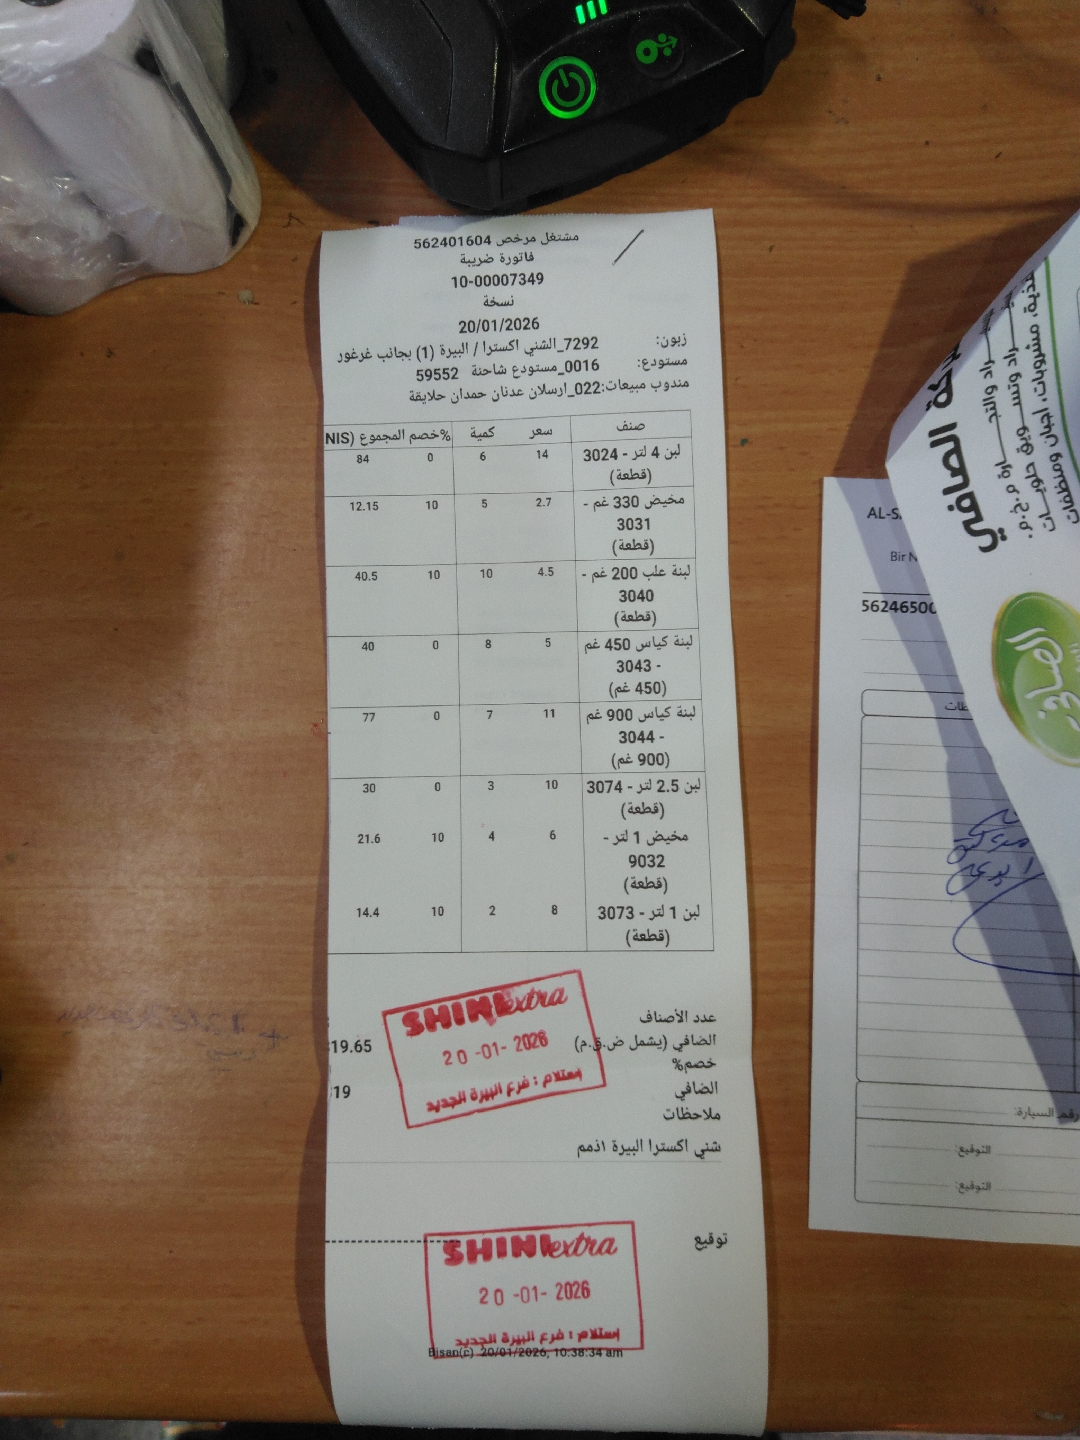 مشتغل مرخص 562401604
فاتورة ضريبة
10-00007349
نسخة
20/01/2026
زبون: 7292_الشني اكسترا / البيرة (1) بجانب غرغور
مستودع: 0016_مستودع شاحنة 59552
مندوب مبيعات:022_ارسلان عدنان حمدان حلايقة
صنف سعر كمية %خصم المجموع (NIS
لبن 4 لتر - 3024 14 6 0 84
(قطعة)
مخيض 330 غم - 2.7 5 10 12.15
3031
(قطعة)
لبنة علب 200 غم - 4.5 10 10 40.5
3040
(قطعة)
لبنة كياس 450 غم 5 8 0 40
- 3043
(450 غم)
لبنة كياس 900 غم 11 7 0 77
- 3044
(900 غم)
لبن 2.5 لتر - 3074 10 3 0 30
(قطعة)
مخيض 1 لتر - 6 4 10 21.6
9032
(قطعة)
لبن 1 لتر - 3073 8 2 10 14.4
(قطعة)
عدد الأصناف
الصافي (يشمل ض.ق.م) 19.65
خصم%
الصافي 19
ملاحظات
شني اكسترا البيرة 1ذمم
SHINI extra
20-01-2026
إستلام : فرع البيرة الجديد
توقيع
SHINI extra
20-01-2026
إستلام : فرع البيرة الجديد
Bisan(c) 20/01/2026, 10:38:34 am
الصافي
AL-S
Bir N
56246500
رقم السيارة:
التوقيع:
التوقيع: